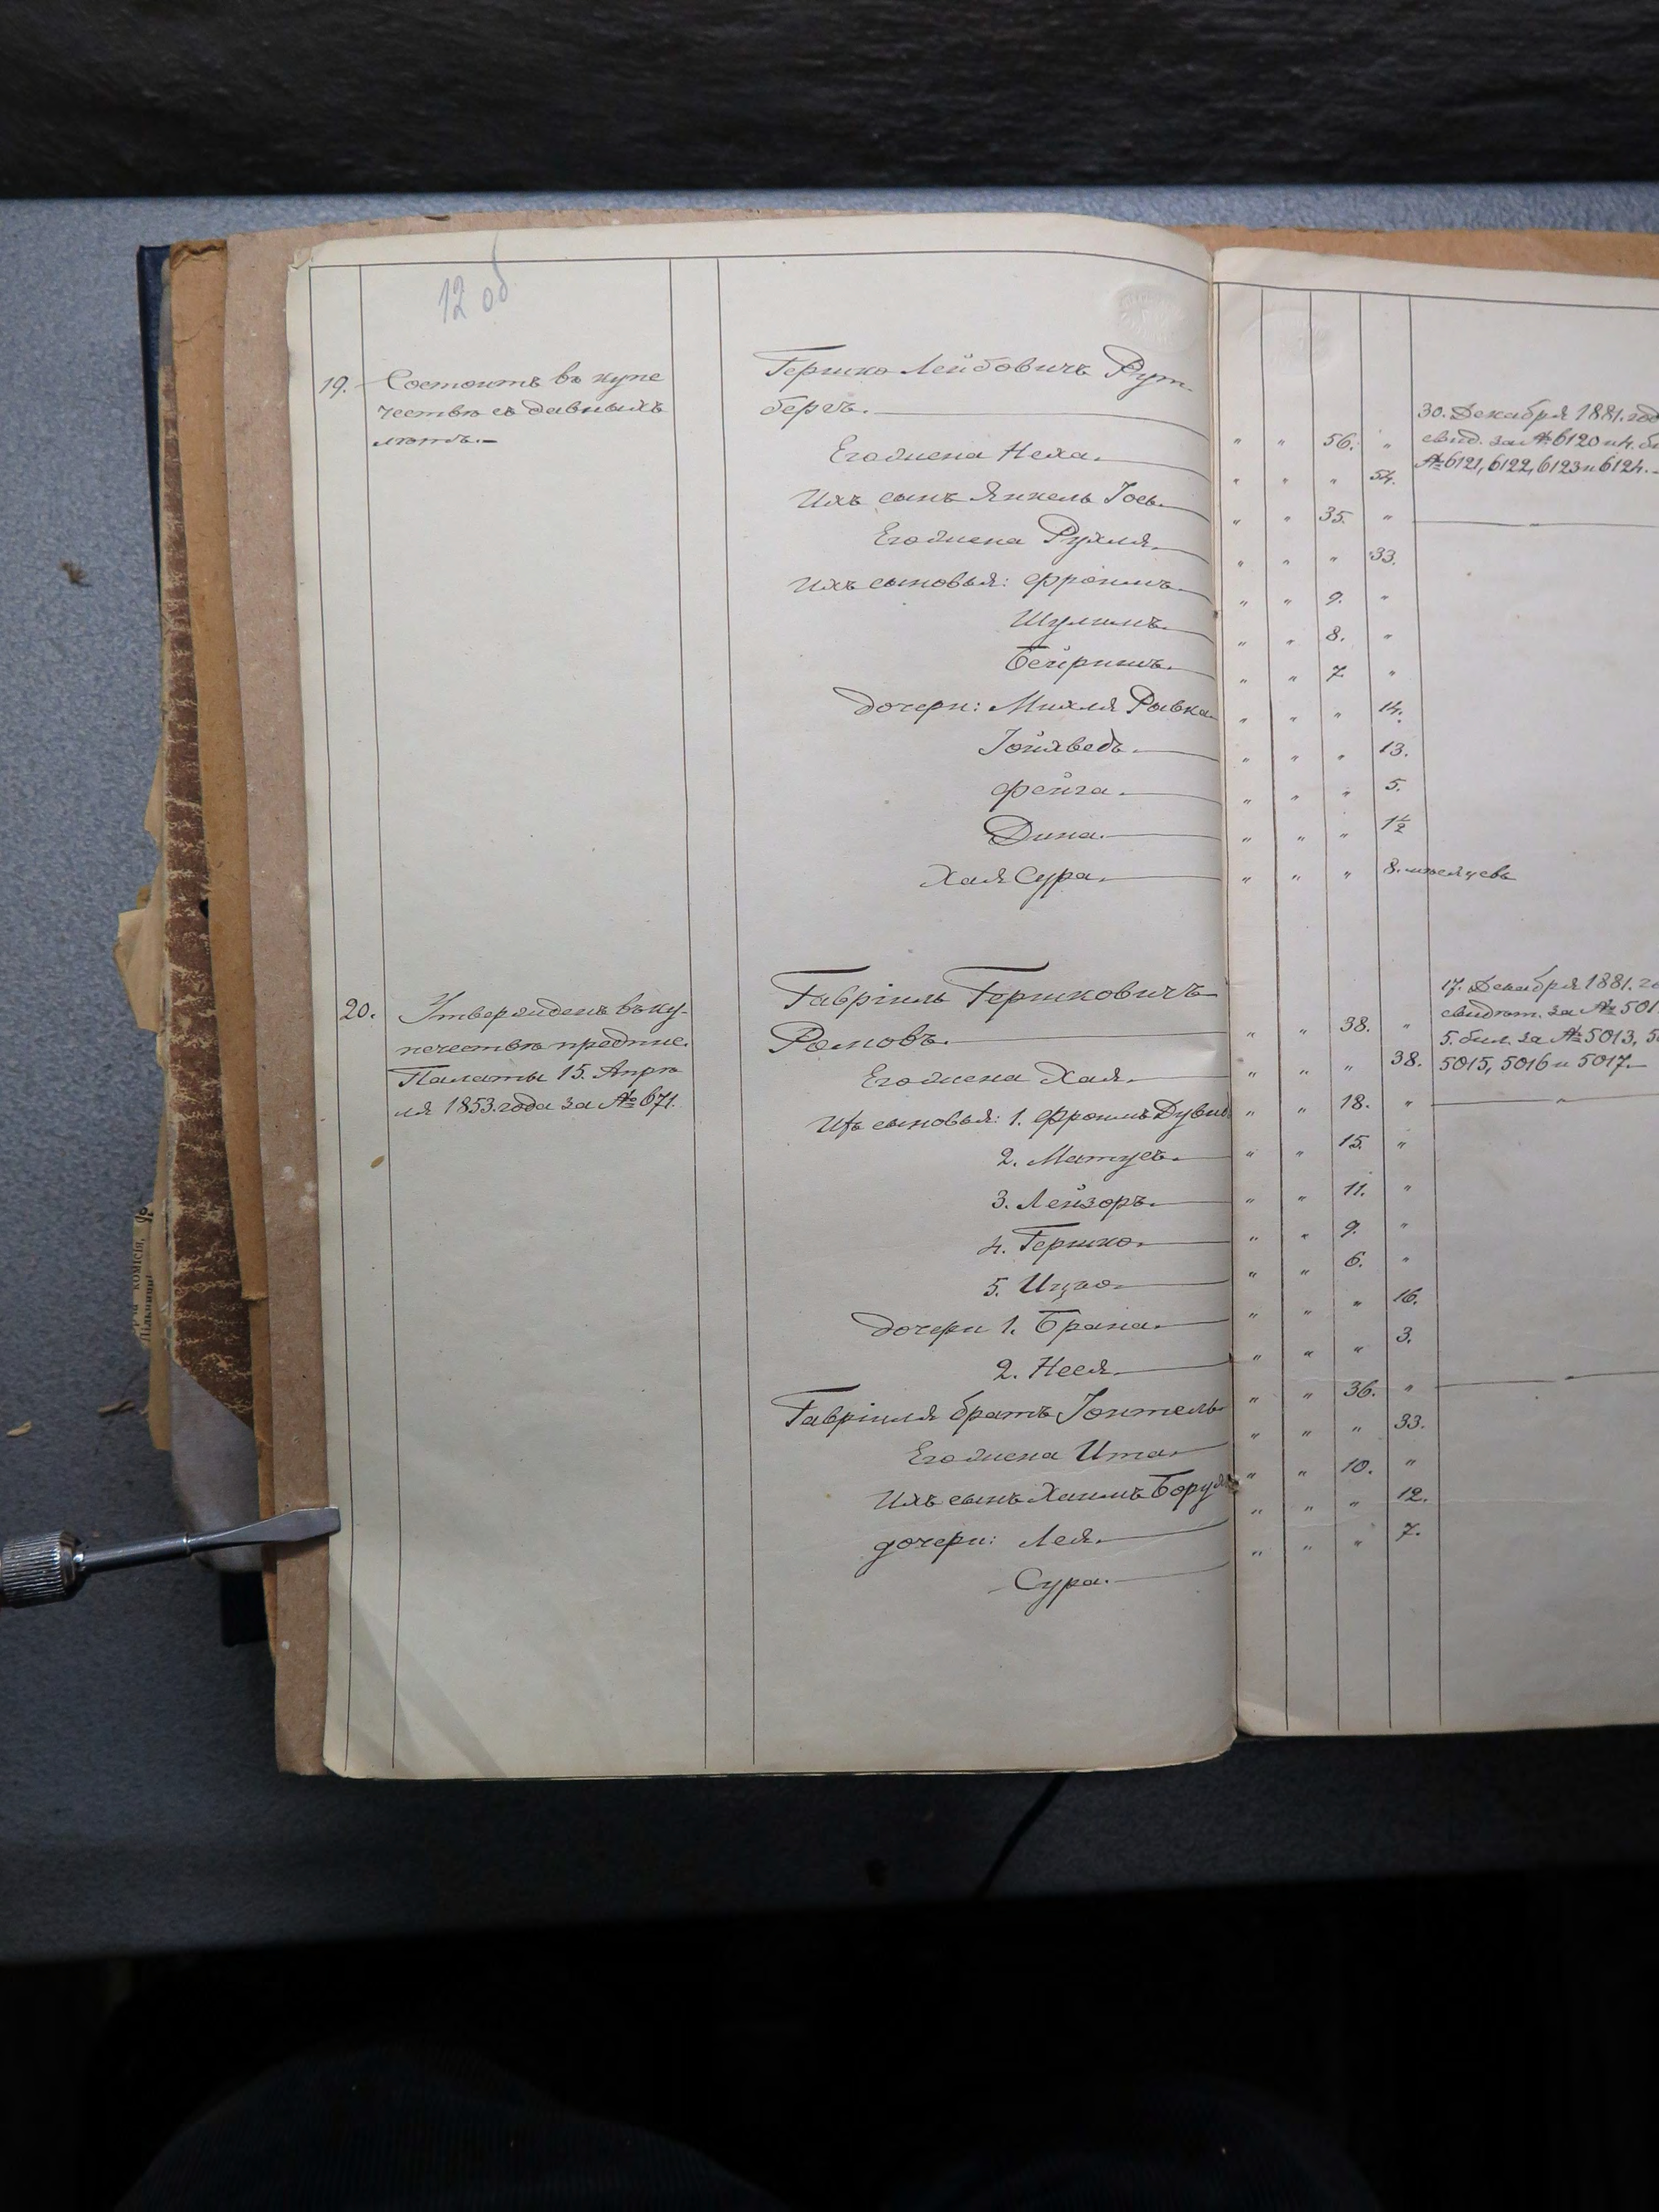 12 об
19. Состоитъ въ купе
чествѣ съ давныхъ
лѣтъ.
Гершко Лейбовичъ Рут-
бергъ. " " 56. "
Его жена Неха. " " " 54.
Ихъ сынъ Янкель Іось. " " 35. "
Его жена Рухля. " " " 33.
Ихъ сыновья: Фроимъ. " " 9. "
Шулимъ. " " 8. "
Бейришъ. " " 7. "
дочери: Михля Рывка " " " 14.
Іойхведъ. " " " 13.
Фейга. " " " 5.
Дина. " " " 1½
Хая Сура. " " " 8. мѣсяцевъ
30. Декабря 1881. год
свид. за № 6120 и 4. би
№ 6121, 6122, 6123 и 6124.
20. Утвержденъ въ ку-
печествѣ предпис.
Палаты 15. Апрѣ
ля 1853. года за № 671.
Гавріиль Гершковичъ
Роповъ. " " 38. "
Его жена Хая. " " " 38.
Ихъ сыновья: 1. Фроимъ Дувид " " 18. "
2. Матусъ. " " 15. "
3. Лейзоръ. " " 11. "
4. Гершко. " " 9. "
5. Ицко. " " 6. "
дочери 1. Брана. " " " 16.
2. Неся. " " " 3.
Гавріиля братъ Іонтель " " 36. "
Его жена Ита. " " " 33.
Ихъ сынъ Хаимъ Борух " " 10. "
дочери: Лея. " " " 12.
Сура. " " " 7.
17. Декабря 1881. го
свидѣт. за № 501
5. бил. за № 5013, 50
5015, 5016 и 5017.
комісія,